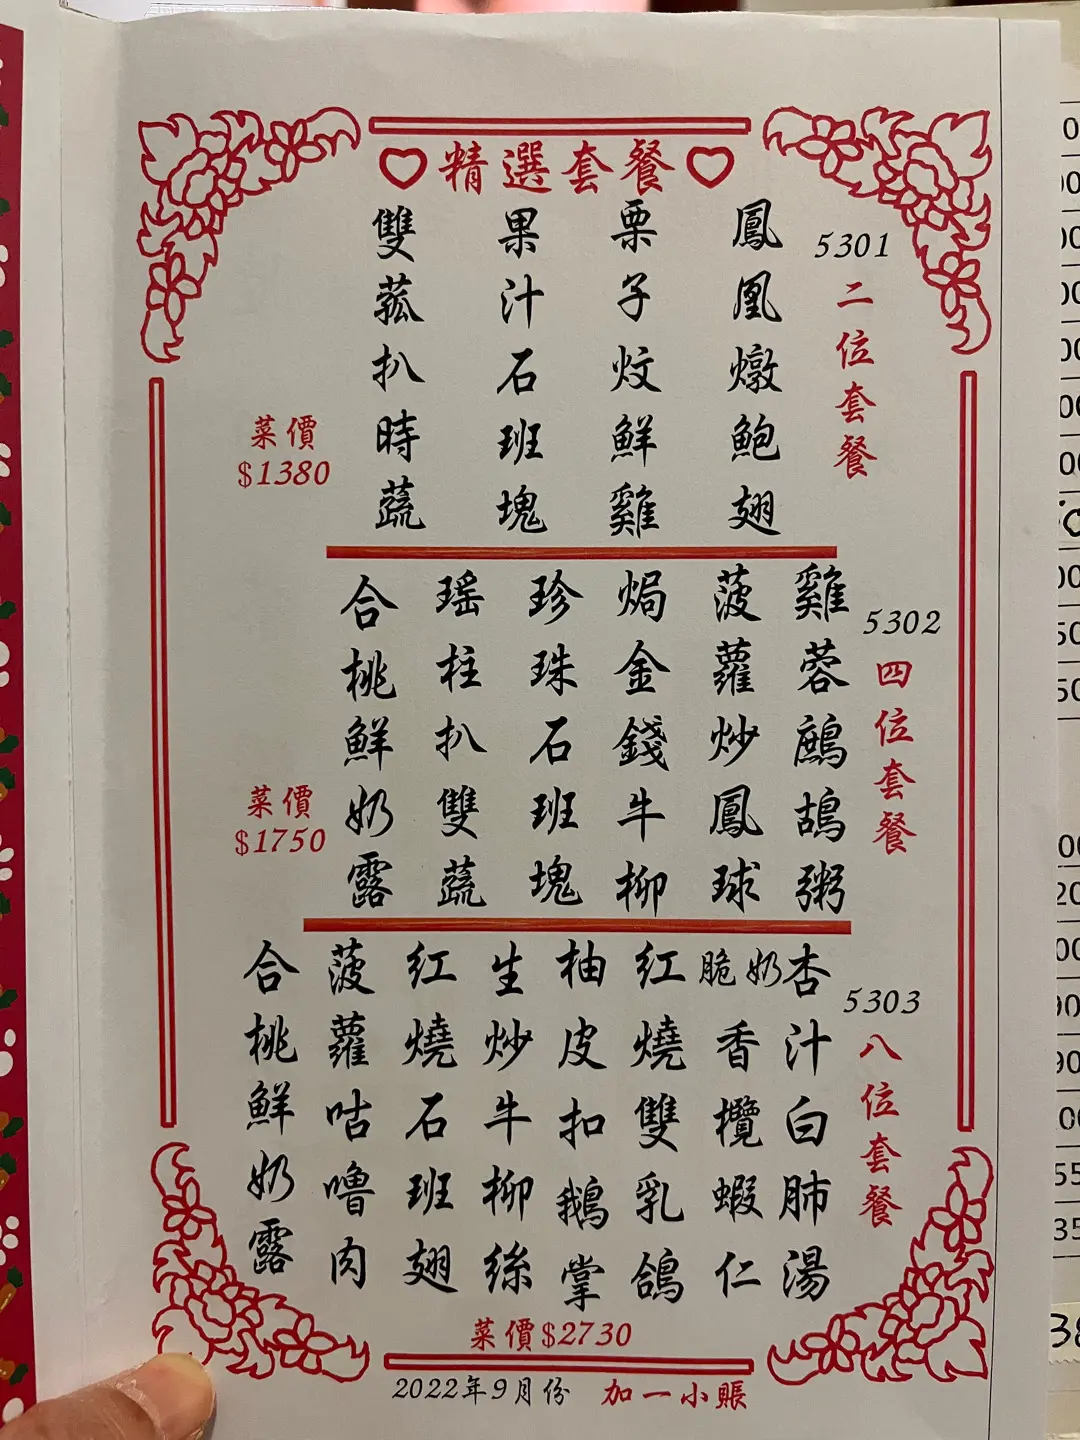 精選套餐
5301
二位套餐
鳳凰燉鮑翅
栗子炆鮮雞
果汁石班塊
雙菰扒時蔬
菜價
$1380
5302
四位套餐
雞蓉鷓鴣粥
菠蘿炒鳳球
焗金錢牛柳
珍珠石班塊
瑤柱扒雙蔬
合桃鮮奶露
菜價
$1750
5303
八位套餐
杏汁白肺湯
脆奶香欖蝦仁
紅燒雙乳鴿
柚皮扣鵝掌
生炒牛柳絲
紅燒石班翅
菠蘿咕嚕肉
合桃鮮奶露
菜價$2730
2022年9月份 加一小賬